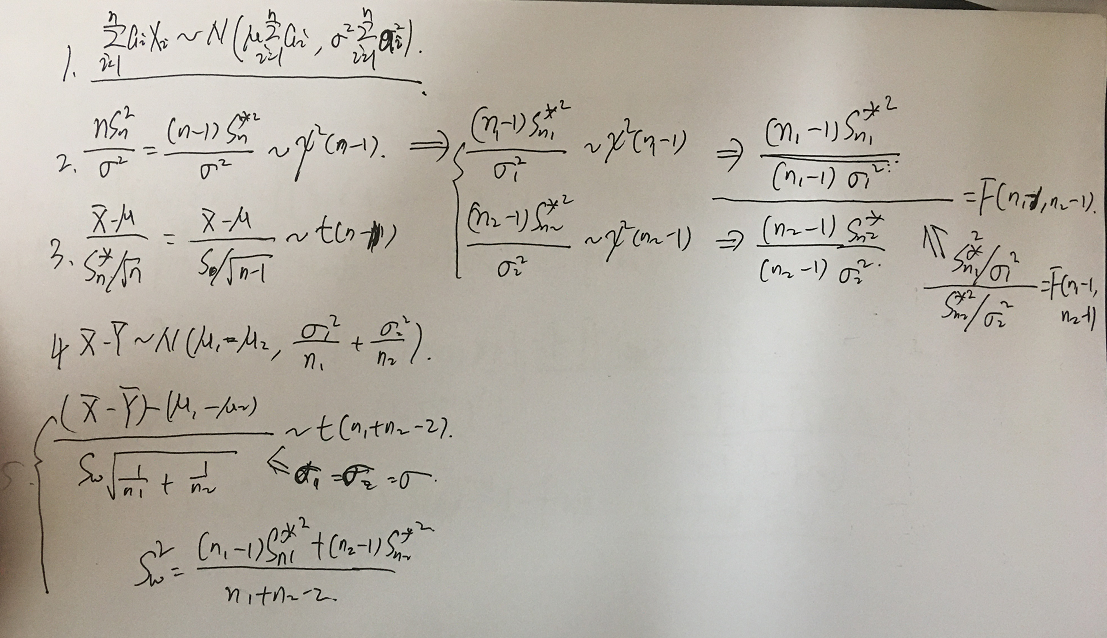 1. \sum_{i=1}^{n} a_i X_i ~ N(μ \sum_{i=1}^{n} a_i, σ^2 \sum_{i=1}^{n} a_i^2).
2. \frac{nS_n^2}{σ^2} = \frac{(n-1)S_n^{*2}}{σ^2} ~ χ^2(n-1). ⇒ { \frac{(n_1-1)S_{n_1}^{*2}}{σ_1^2} ~ χ^2(n-1) ⇒ \frac{(n_1-1)S_{n_1}^{*2}}{(n_1-1)σ_1^2}
\frac{(n_2-1)S_{n_2}^{*2}}{σ_2^2} ~ χ^2(n_2-1) ⇒ \frac{(n_2-1)S_{n_2}^{*}}{(n_2-1)σ_2^2} = F(n_1-1, n_2-1).
⇑ \frac{S_{n_1}^{*2}/σ_1^2}{S_{n_2}^{*2}/σ_2^2} = F(n-1, n_2-1)
3. \frac{\bar{X}-μ}{S_n^*/\sqrt{n}} = \frac{\bar{X}-μ}{S_n/\sqrt{n-1}} ~ t(n-1)
4 \bar{X}-\bar{Y} ~ N(μ_1-μ_2, \frac{σ_1^2}{n_1} + \frac{σ_2^2}{n_2}).
5. { \frac{(\bar{X}-\bar{Y})-(μ_1-μ_2)}{S_w\sqrt{\frac{1}{n_1}+\frac{1}{n_2}}} ~ t(n_1+n_2-2).
⇐ σ_1=σ_2=σ.
S_w^2 = \frac{(n_1-1)S_{n1}^{*2}+(n_2-1)S_{n_2}^{*2}}{n_1+n_2-2.}